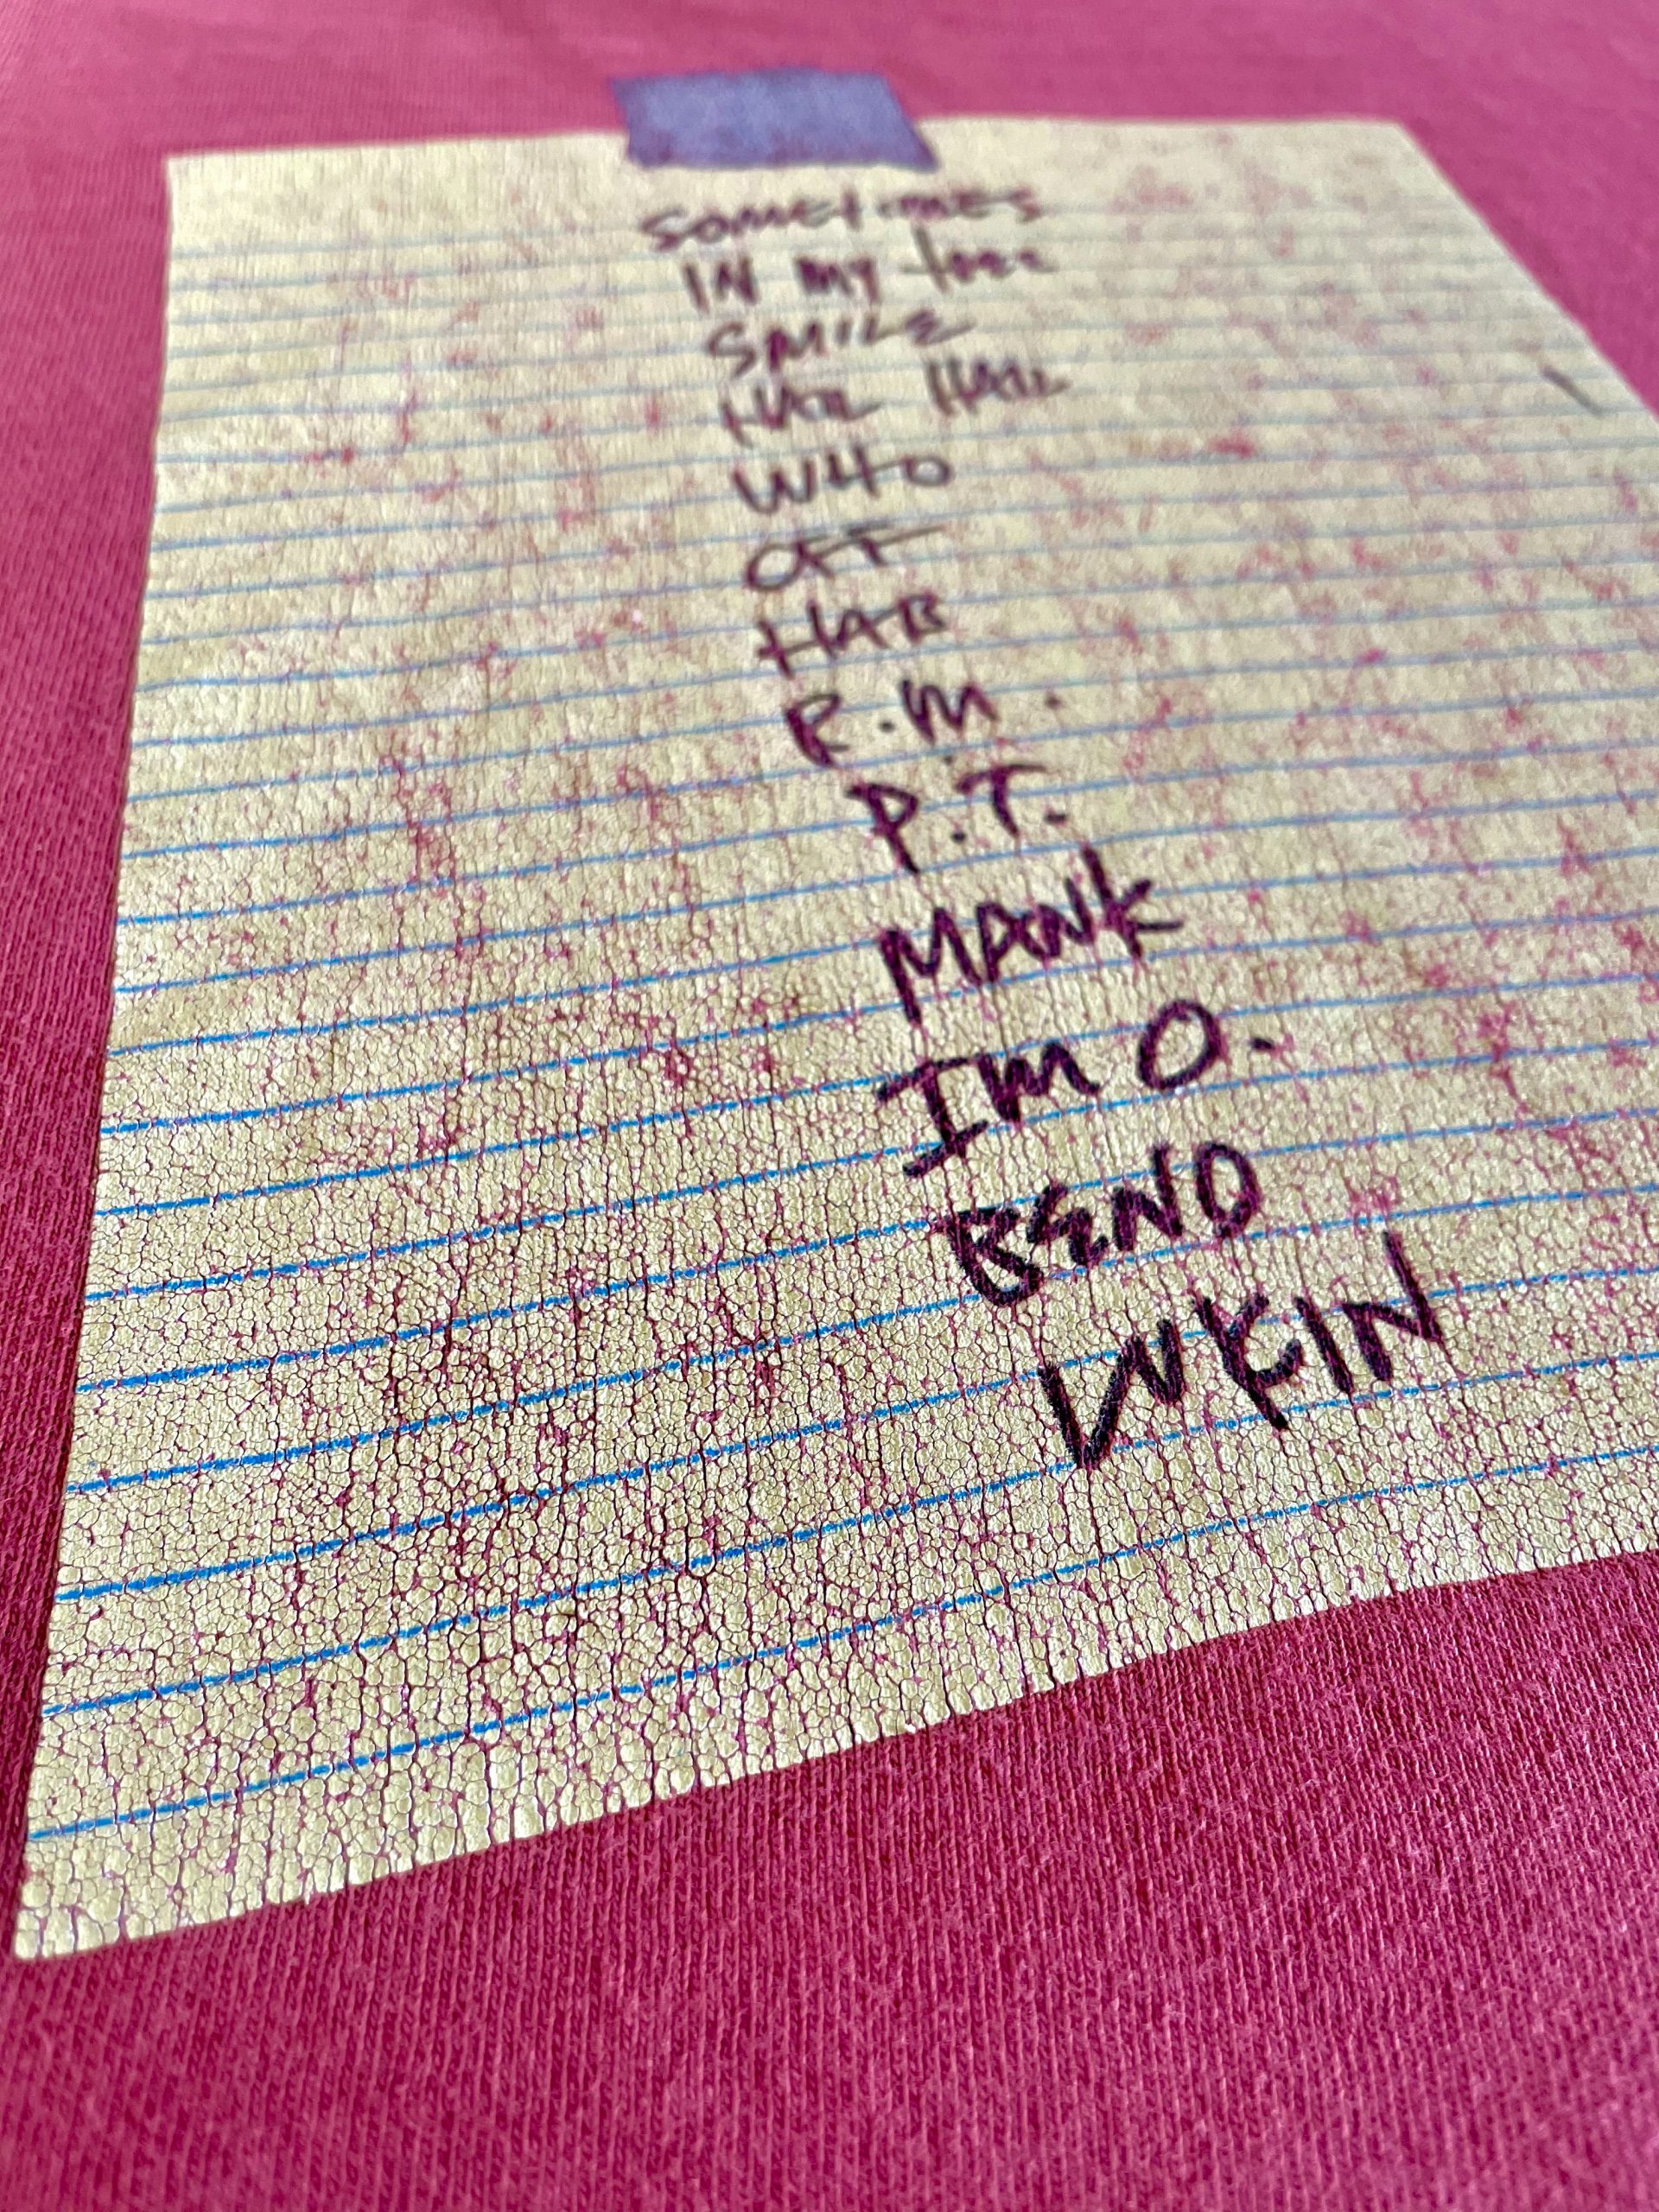 SOMETIMES
IN MY tree
SMILE
HAIL HAIL
WHO
OFF
HAB
R.M.
P.T.
MANK
IM O.
BEND
LUKIN